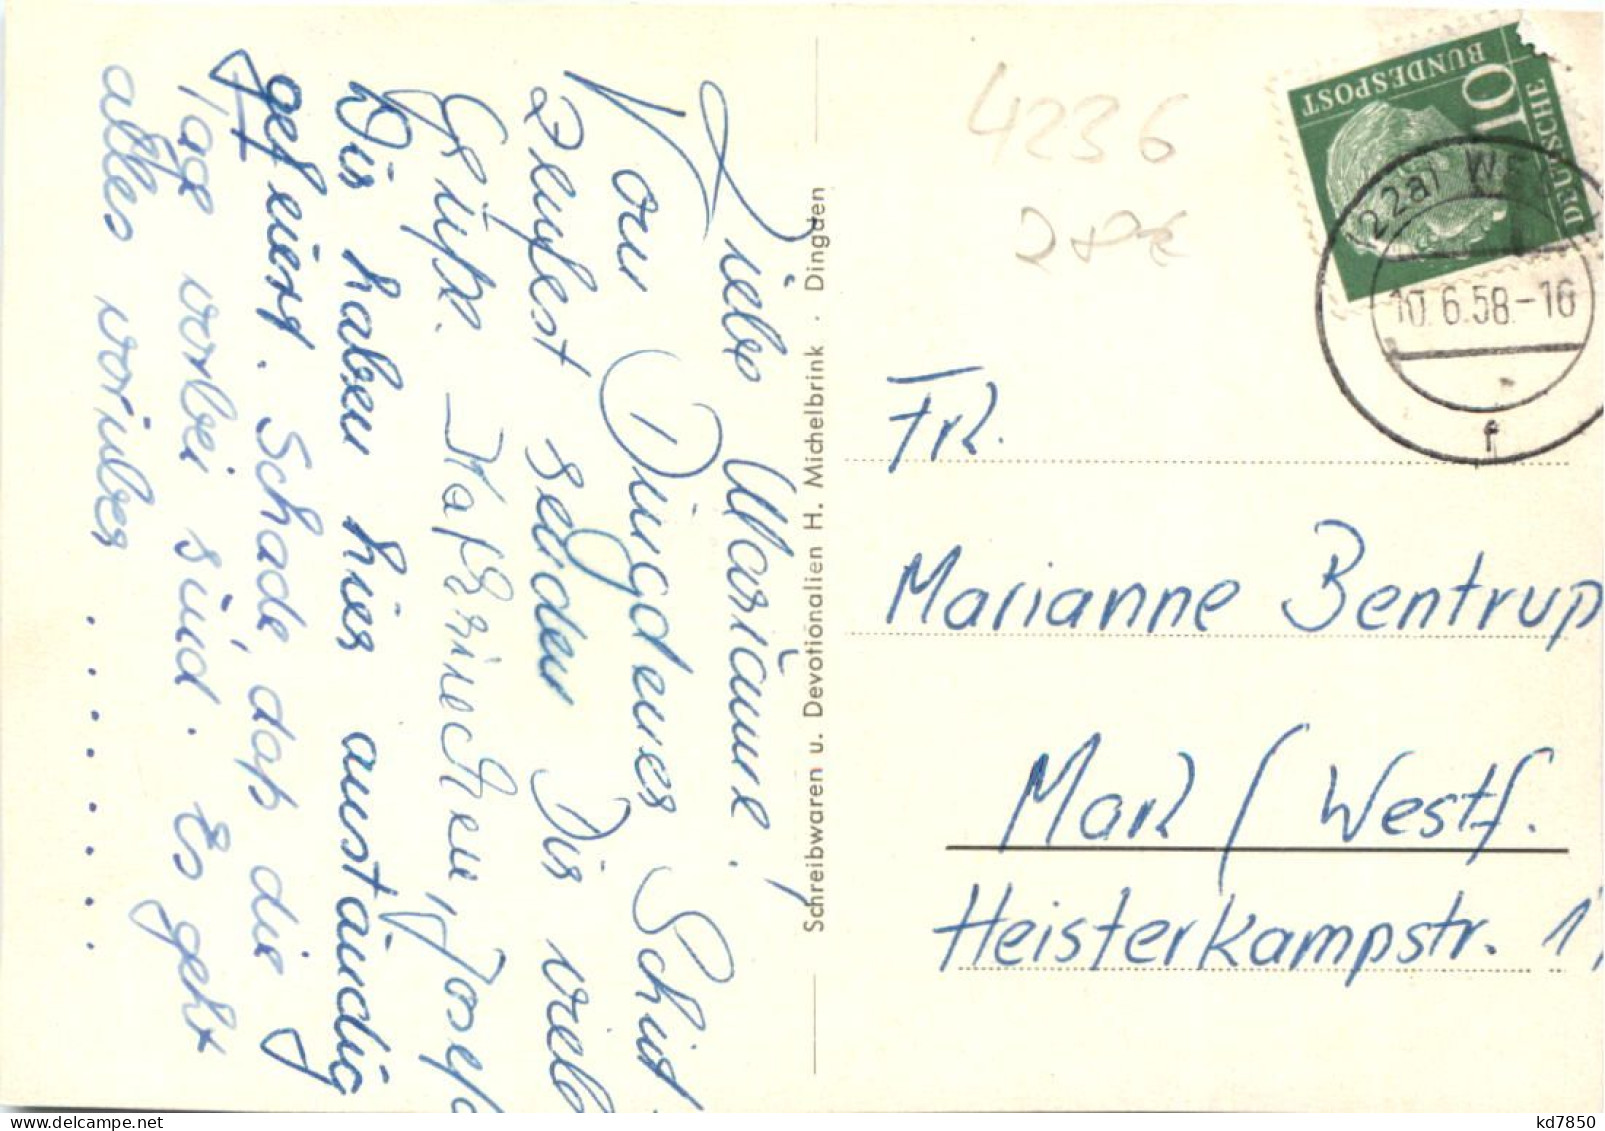 Liebe Marianne!
Vom Dingdener Schüt
zenfest senden Dir viele
Grüße. Kathrinchen, Josefa
Wir haben hier anständig
gefeiert. Schade, daß die
Tage vorbei sind. Es geht
alles vorüber . . . . . . .
Schreibwaren u. Devotionalien H. Michelbrink · Dingden
4236
DEUTSCHE
BUNDESPOST
10
(22a) WE
10.6.58.-16
f
Frl.
Marianne Bentrup
Marl / Westf.
Heisterkampstr.
kd7850